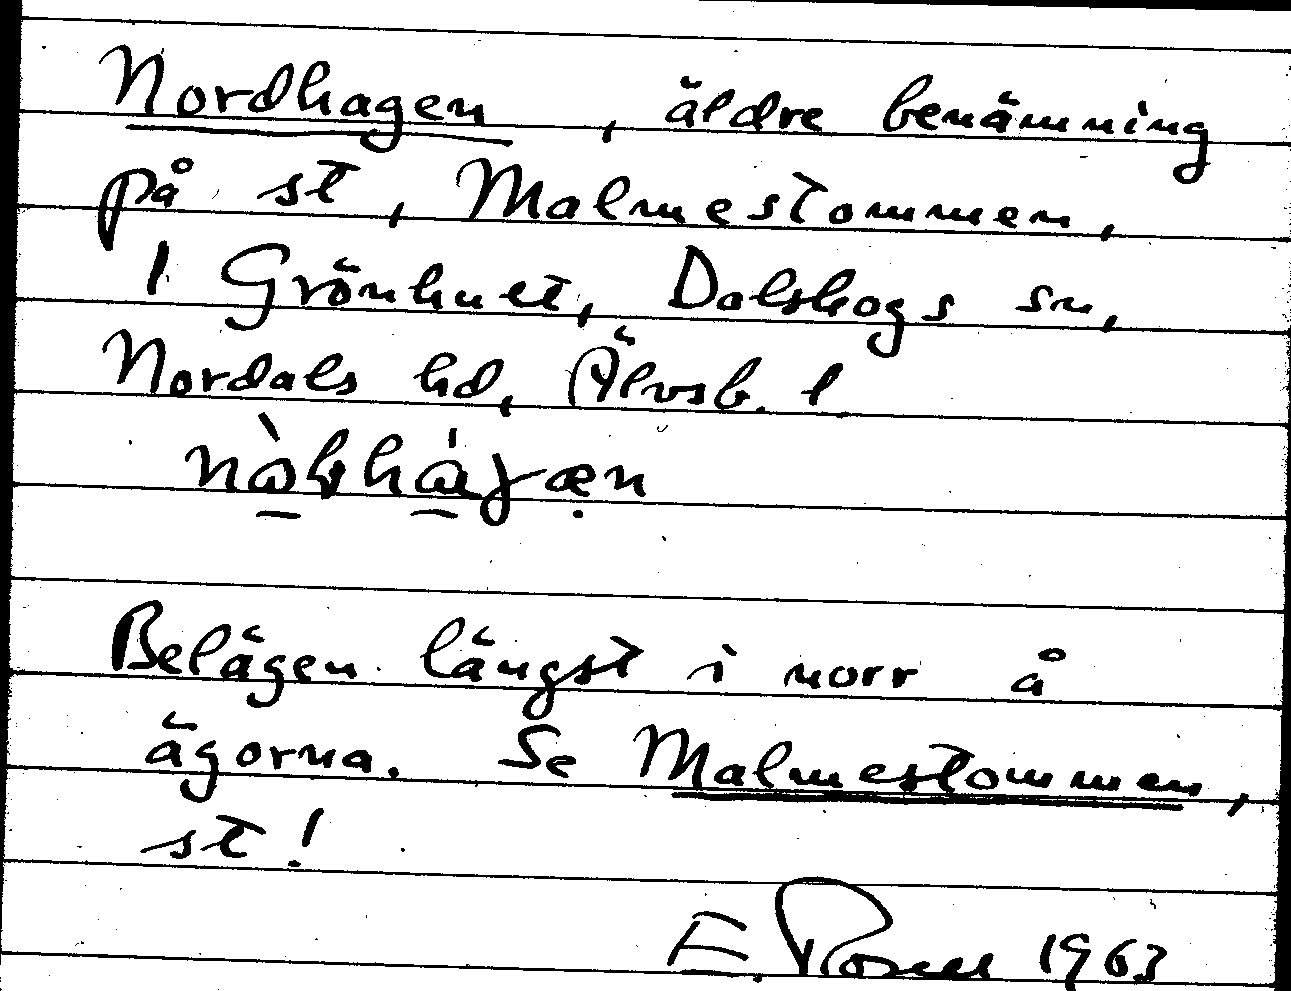 Nordhagen, äldre benämning
på st, Malmestommen,
1 Grönhult, Dalskogs sn,
Nordals hd, Älvsb. l
Belägen längst i norr å
ägorna. Se Malmestommen,
st!
E. Rosell 1963